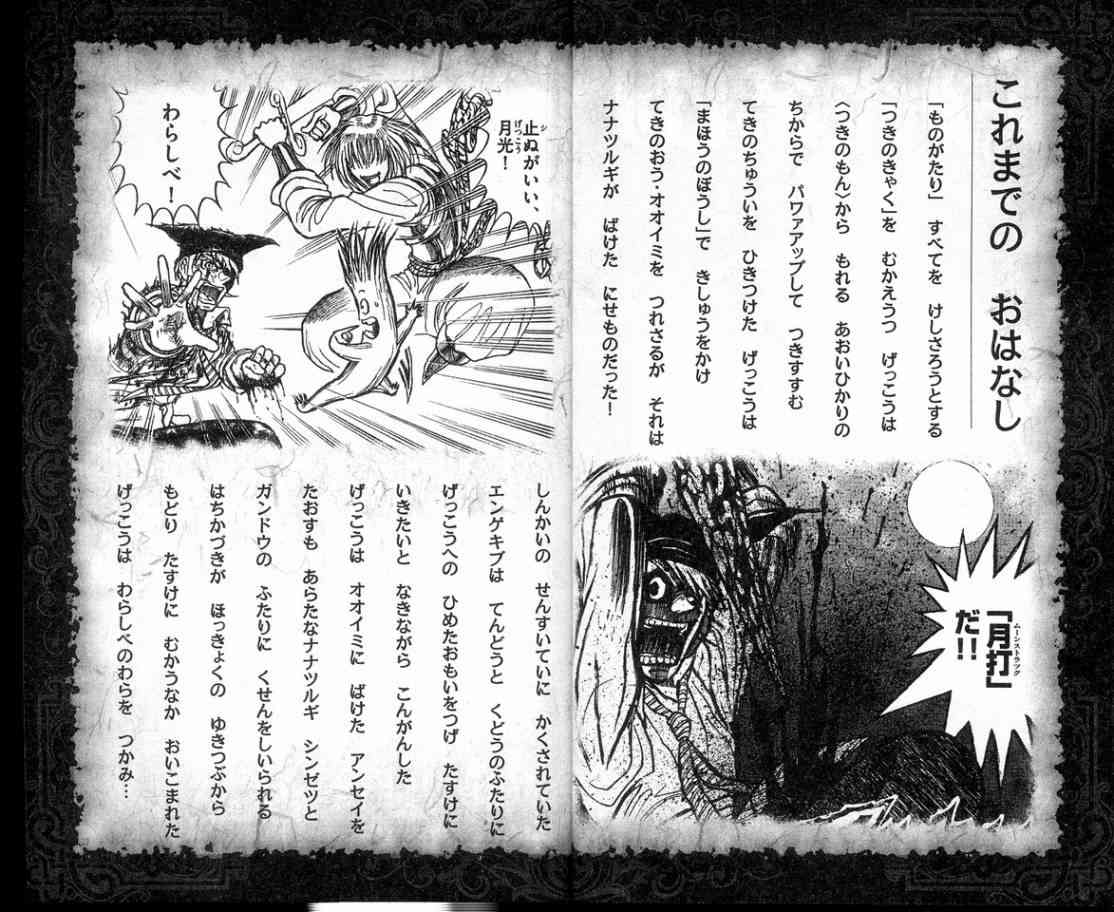 これまでの　おはなし
「ものがたり」　すべてを　けしさろうとする
「つきのきゃく」を　むかえうつ　げっこうは
〈つきのもん〉から　もれる　あおいひかりの
ちからで　パワァアップして　つきすすむ
てきのちゅういを　ひきつけた　げっこうは
「まほうのぼうし」で　きしゅうをかけ
てきのおう・オオイミを　つれさるが　それは
ナナツルギが　ばけた　にせものだった！
「月打」
ムーンストラック
だ!!
止ぬがいい、
シ
月光！
げっこう
わらしべ！
しんかいの　せんすいていに　かくされていた
エンゲキブは　てんどうと　くどうのふたりに
げっこうへの　ひめたおもいをつげ　たすけに
いきたいと　なきながら　こんがんした
げっこうは　オオイミに　ばけた　アンセイを
たおすも　あらたなナナツルギ　シンゼツと
ガンドウの　ふたりに　くせんをしいられる
はちかづきが　ほっきょくの　ゆきつぶから
もどり　たすけに　むかうなか　おいこまれた
げっこうは　わらしべのわらを　つかみ…